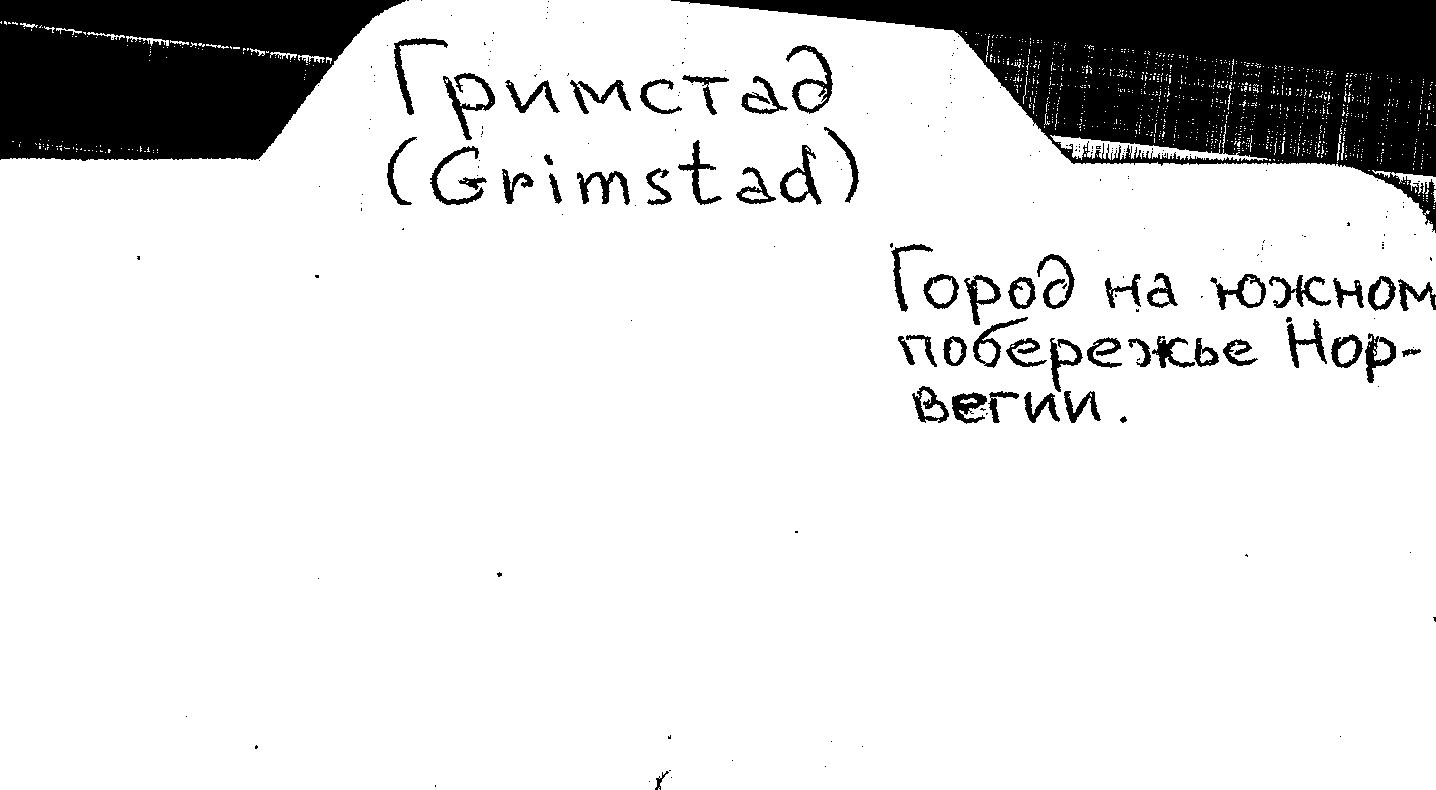 Гримстад
(Grimstad)
Город на южном
побережье Нор-
вегии.